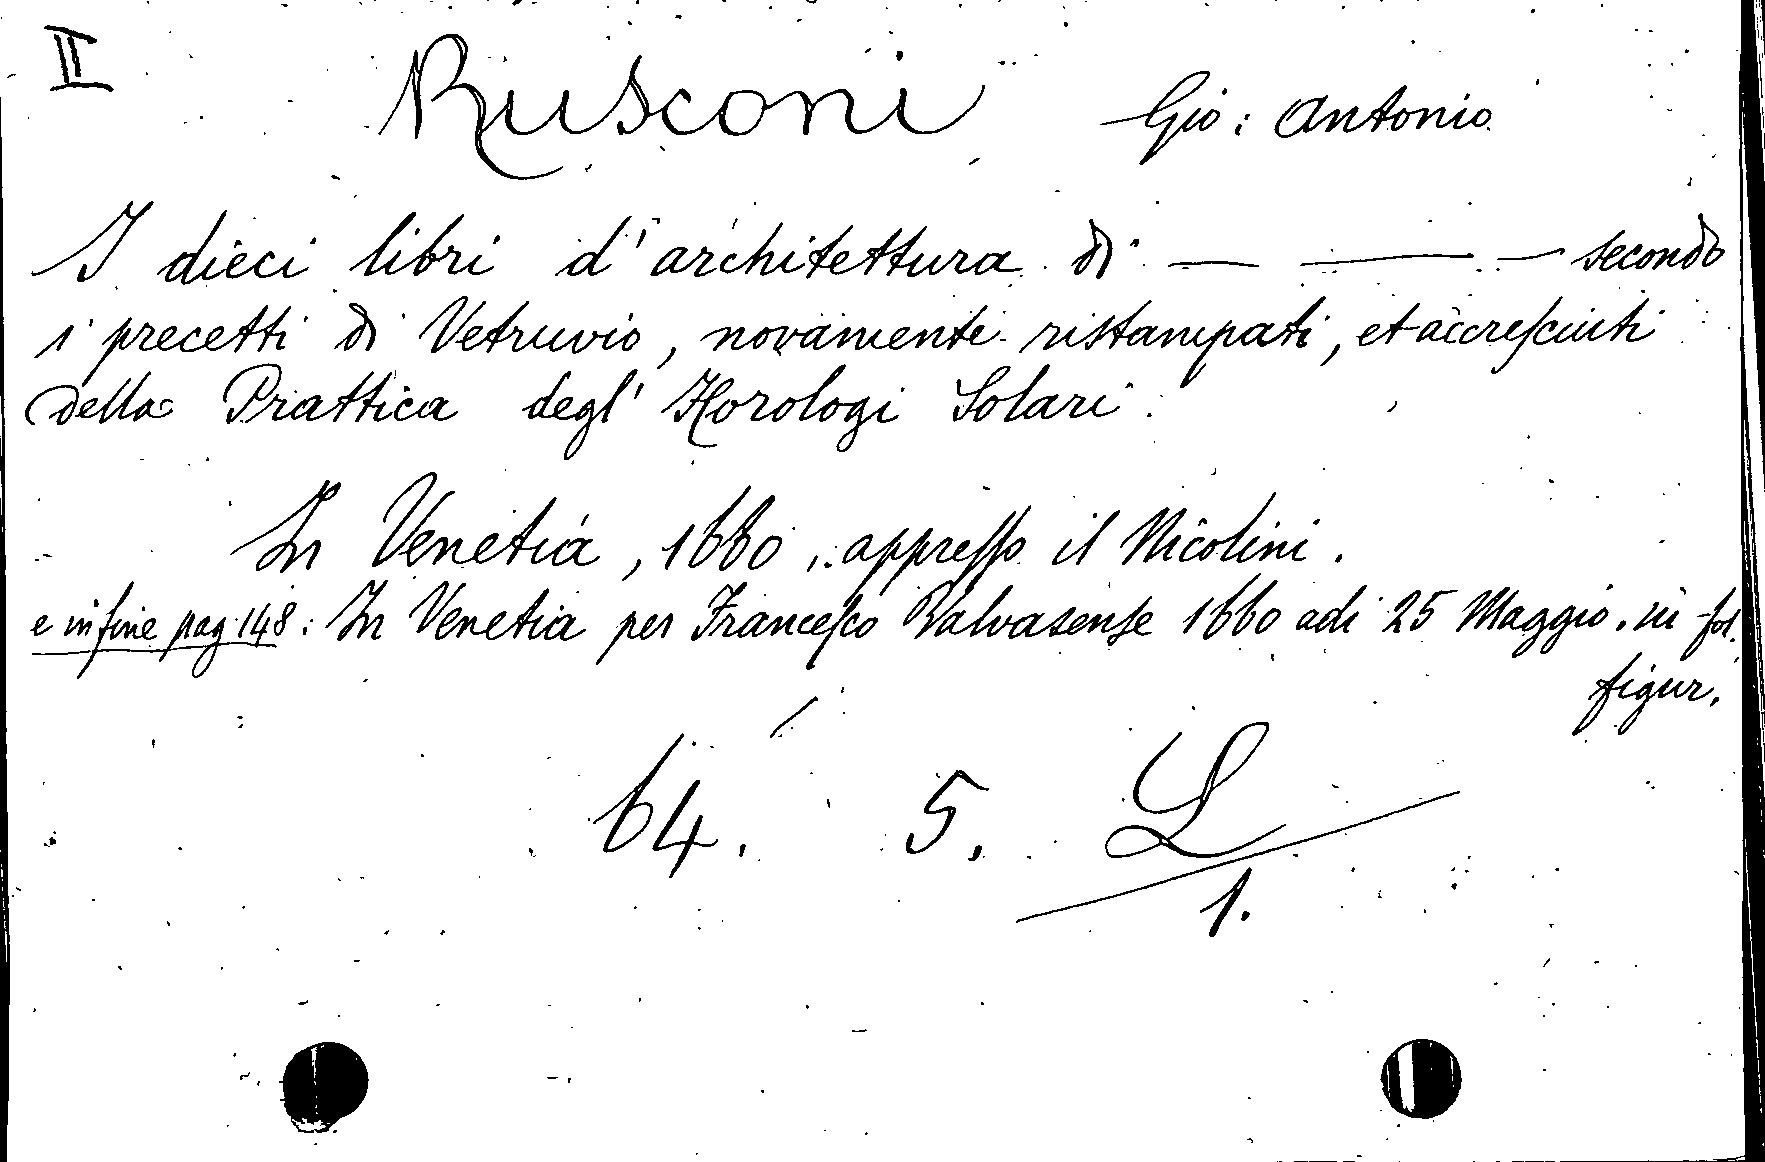 II
Rusconi Gio: Antonio
I dieci libri d'architettura di — —— — secondo
i precetti di Vetruvio, novamente ristampati, et accresciuti
della Prattica degl' Horologi Solari.
In Venetia, 1660, appresso il Nicolini.
e in fine pag. 148: In Venetia per Francesco Valvasense 1660 adi 25 Maggio. in fol.
figur.
64. 5. L
1.